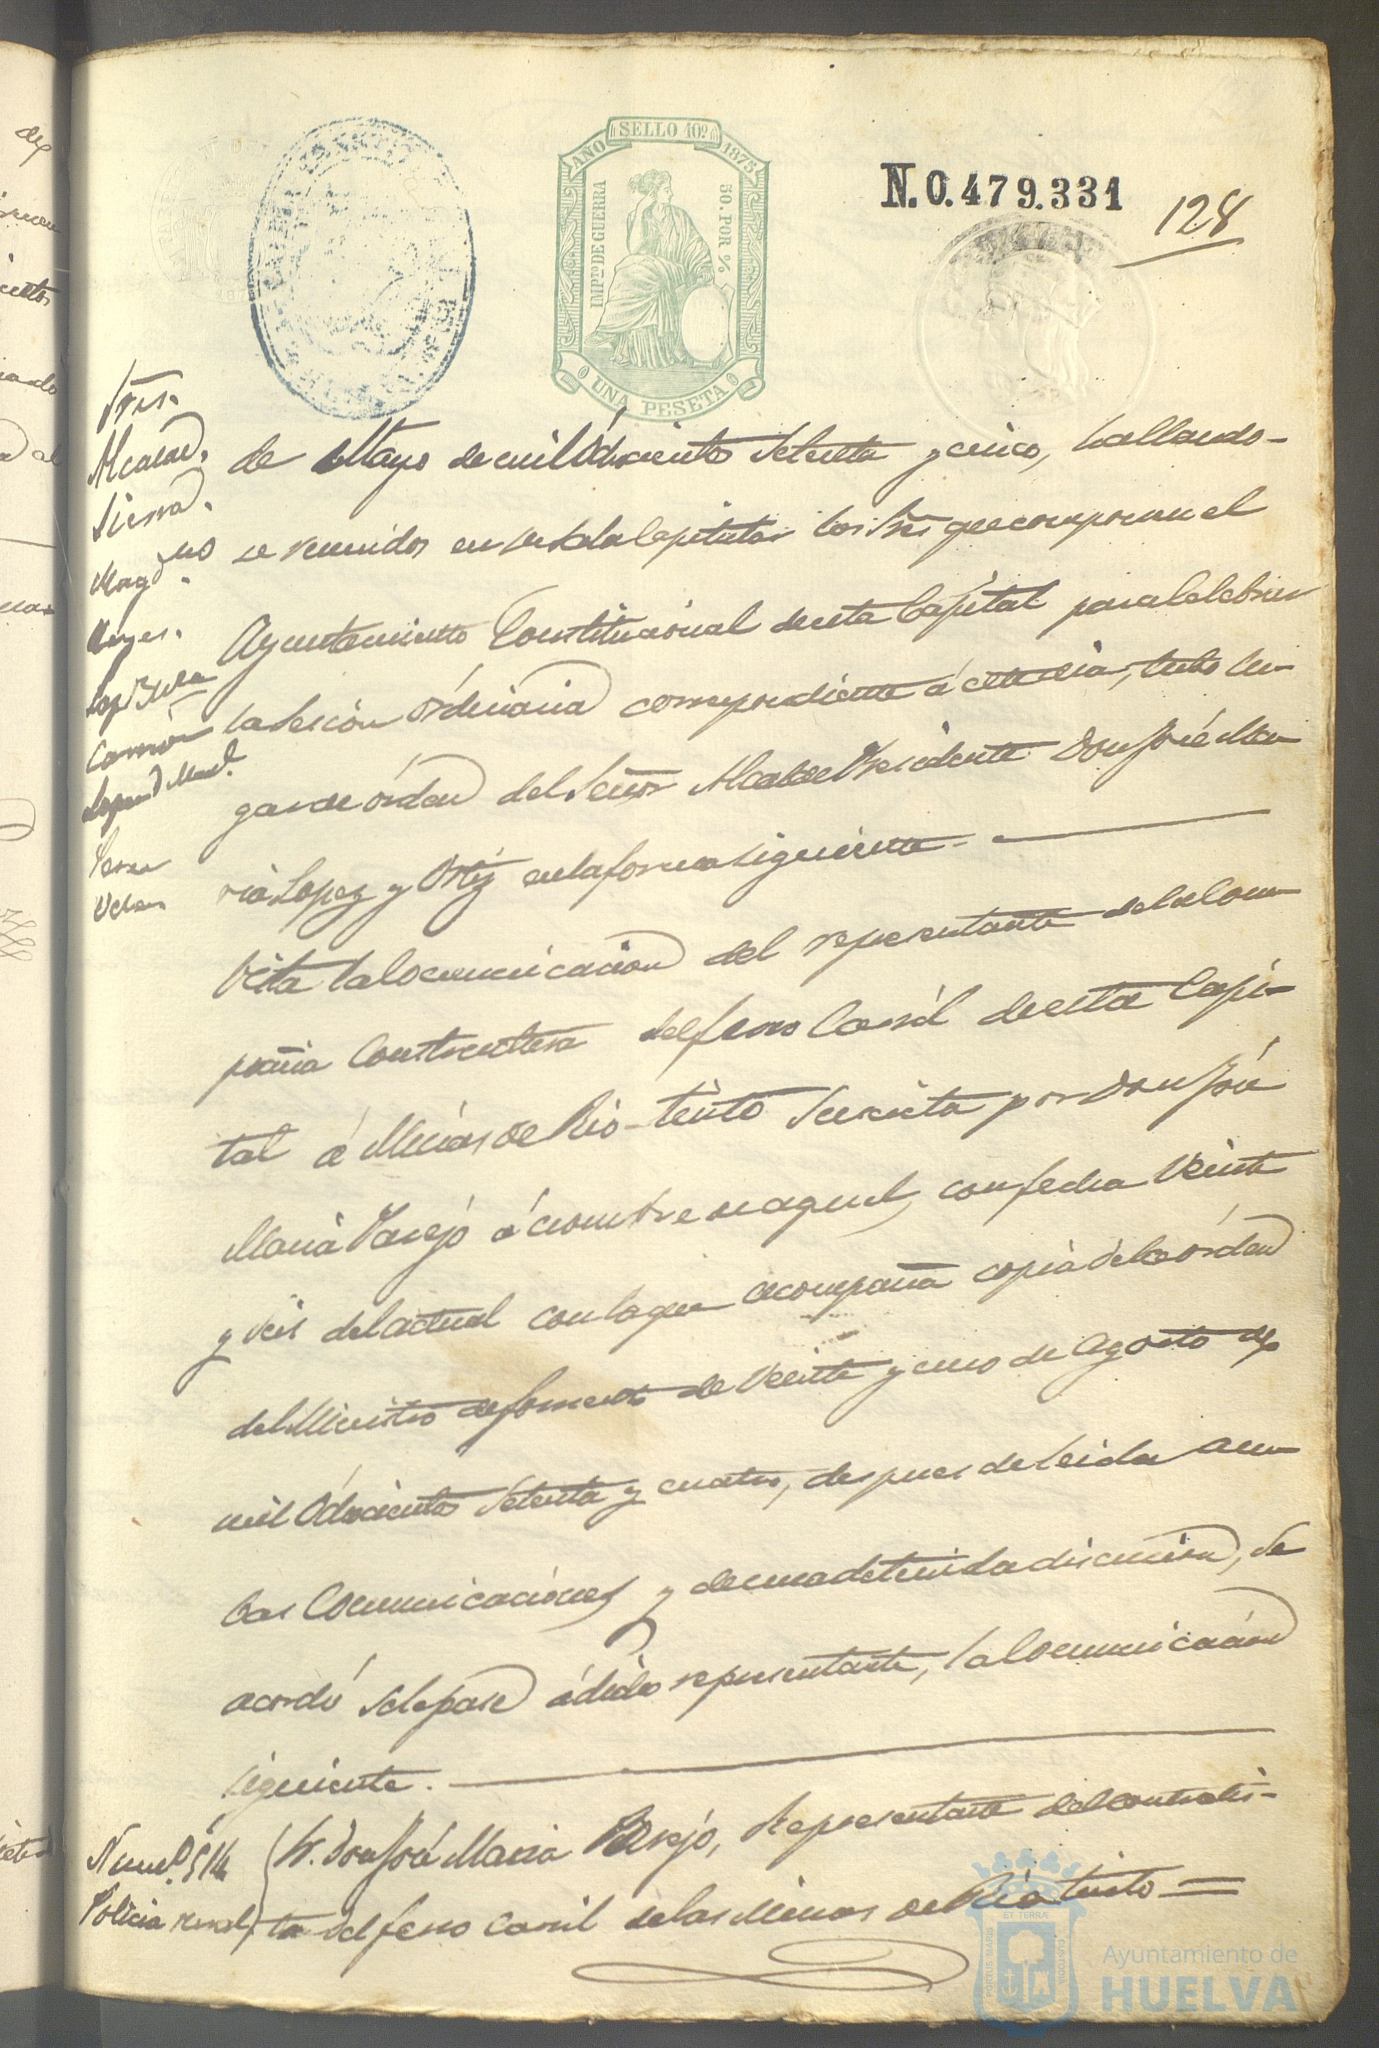 SELLO 10º
AÑO 1875
IMPTO DE GUERRA
50. POR %
UNA PESETA
N. 0.479.331
128
Sres.
Alcalde.
Sierra.
Reyes.
de Mayo de mil Ochocientos Setenta y cinco, hallando-
se reunidos en sala Capitular los Sres que componen el
Ayuntamiento Constitucional de esta Capital para celebrar
la Sesión órdinaria correspondiente á este dia, tubo lu-
gar de órden del Señor Alcalde Presidente Don José Ma
ria Lopez y Ortiz en la forma siguiente.
Vista la comunicacion del representante de la Com
pañia Constructora del ferro Carril de esta Capi-
tal á Minas de Rio-tinto Suscrita por Don José
Maria Parejo á nombre de aquel, con fecha Veinte
y seis del actual con la que acompaña copia de la órden
del Ministro de fomento de Veinte y cinco de Agosto de
mil Ochocientos Setenta y cuatro, despues de leida am
bas Comunicaciones y de una detenida discusion, se
acordó se le pase á dicho representante, la Comunicación
siguiente.
Num.º 514
Policia rural
Sr. Don José Maria Parejo, Representante del contratis-
ta del ferro carril de las Minas de Rio tinto =
PORTUS MARIS
ET TERRAE
CUSTODIA
Ayuntamiento de
HUELVA